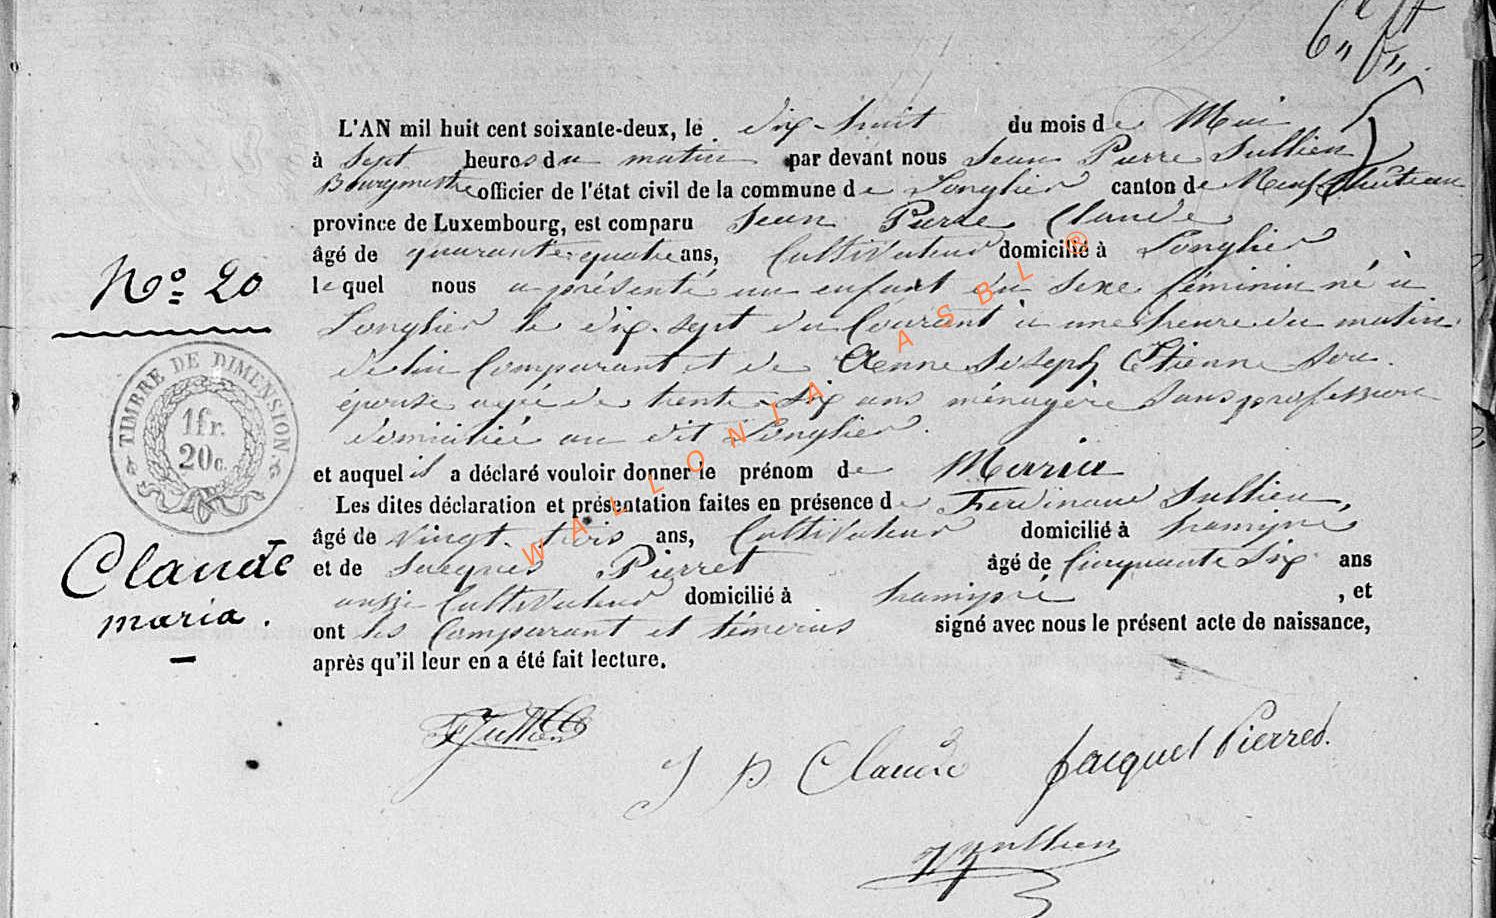 L'AN mil huit cent soixante-deux, le dix-huit du mois de Mai
à Sept heures du matin par devant nous Jean Pierre Jullien
Bourgmestre officier de l'état civil de la commune de Longlier canton de Neufchâteau
province de Luxembourg, est comparu Jean Pierre Claude
âgé de quarante-quatre ans, Cultivateur domicilié à Longlier
lequel nous a présenté un enfant du sexe féminin né à
Longlier le dix-sept du Courant à une heure du matin
de lui Comparant et de Anne Joseph Etienne son
épouse agée de trente-six ans ménagère Sans profession
domiciliée au dit Longlier.
et auquel il a déclaré vouloir donner le prénom de Maria
Les dites déclaration et présentation faites en présence de Ferdinand Jullien,
âgé de vingt-trois ans, Cultivateur domicilié à
et de Jacques Pierret âgé de Cinquante Six ans
aussi Cultivateur domicilié à , et
ont les Comparant et témoins signé avec nous le présent acte de naissance,
après qu'il leur en a été fait lecture.
No 20
TIMBRE DE DIMENSION.
1 fr.
20 c.
Claude
maria.
FJullien
J P Claude
Jacques Pierret.
Jullien
WALLONIA ASBL ®